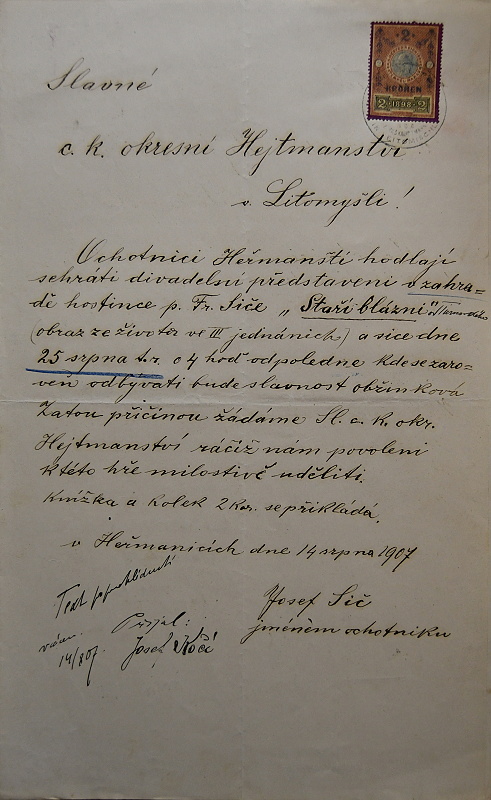 2
KRONEN
2 1898 2
Slavné
c. k. okresní Hejtmanství
v Litomyšli!
Ochotníci Heřmanští hodlají
sehráti divadelní představení v zahra-
dě hostince p. Fr. Siče „Staří blázni"
(obraz ze života ve III jednáních) a sice dne
25 srpna t.r. o 4 hod odpoledne kde se zaro-
veň odbývati bude slavnost obžinková
Zatou příčinou žádáme Sl. c. k. okr.
Hejtmanství račiž nám povolení
k této hře milostivě uděliti.
Knížka a kolek 2 kor. se přikládá.
v Heřmanicích dne 14 srpna 1907
Josef Sič
jménem ochotníku
Text
14/807
Přijal:
Josef Kočí